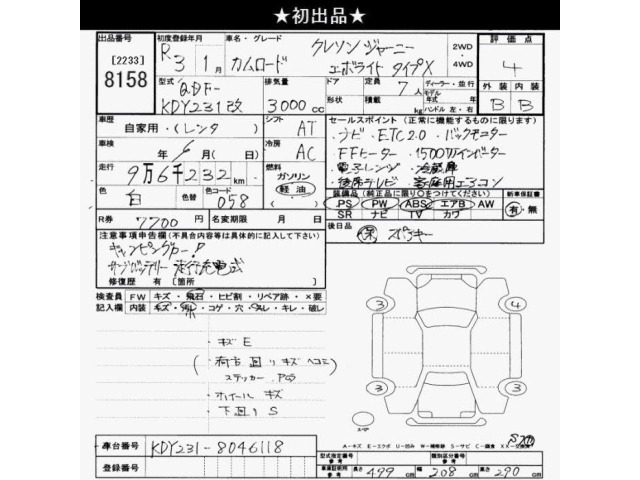 ★初出品★
出品番号 [2233] 8158
初度登録年月 R 3年 1月
車名・グレード カムロード クレソンジャーニー エボライト タイプX
2WD・4WD
評価点 4
外装 B 内装 B
型式 QDF-KDY231改
排気量 3000cc
ドア 形状
定員 7人
積載 kg
ディーラー・並行
モデル年式 年
ハンドル 左・右
車歴 自家用・(レンタ)
シフト AT
車検 年 月(日)
冷房 AC
走行 9万6千232km
燃料 ガソリン 軽油
色 白
色コード 058
R券 7700円
名変期限 月 日
セールスポイント (正常に機能するものに限ります)
・ナビ・ETC2.0・バックモニター
・FFヒーター・1500Wインバーター
・電子レンジ・冷蔵庫
・後席テレビ・家庭用エアコン
装備品 (純正品に限り○をつけてください)
PS PW ABS エアB AW
SR ナビ TV カワ
新車保証書 有・無
後日品 保
注意事項申告欄(不具合内容等は具体的に記入して下さい)
キャンピングカー!
サブバッテリー 走行充電式
修復歴 有[箇所 ]
検査員記入欄
FW キズ・飛石・ヒビ割・リペア跡・×要
内装 キズ・汚レ・コゲ・穴・スレ・キレ・破レ
・キズE
(荷古 回りキズヘコミ)
ステッカー
・ホイールキズ
・下回りS
3 4
3 3
スペア
A-キズ E-エクボ U-凹み W-補修跡 S-サビ C-腐食 XX-交換済
車台番号 KDY231-8046118
登録番号
型式指定番号 参考
類別区分番号 参考
車庫証明用 参考 長さ 499cm 幅 208cm 高さ 290cm